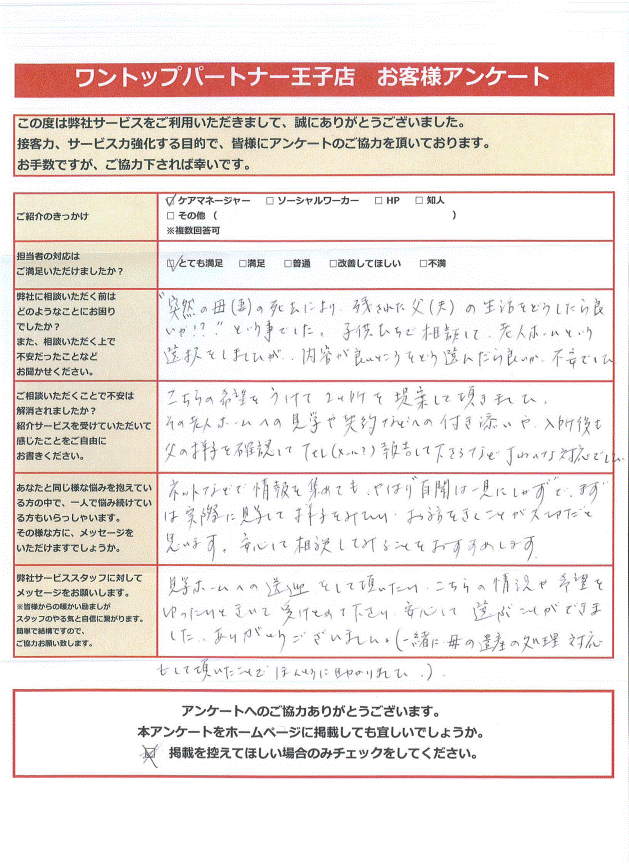 ワントップパートナー王子店　お客様アンケート
この度は弊社サービスをご利用いただきまして、誠にありがとうございました。
接客力、サービス力強化する目的で、皆様にアンケートのご協力を頂いております。
お手数ですが、ご協力下されば幸いです。
ご紹介のきっかけ
☑ケアマネージャー　□ ソーシャルワーカー　□ HP　□ 知人
□ その他（　　　　　　　　　　　　）
※複数回答可
担当者の対応は
ご満足いただけましたか？
☑とても満足　□満足　□普通　□改善してほしい　□不満
弊社に相談いただく前は
どのようなことにお困り
でしたか？
また、相談いただく上で
不安だったことなど
お聞かせください。
"突然の母(妻)の死去により、残された父(夫)の生活をどうしたら良
いか!?"という事でした。子供たちで相談して、老人ホームという
選択をしましたが、内容が良いところをどう選んだら良いか、不安でした
ご相談いただくことで不安は
解消されましたか？
紹介サービスを受けていただいて
感じたことをご自由に
お書きください。
こちらの希望をうけて2ヶ所を提案して頂きました。
その老人ホームへの見学や契約などへの付き添いや、入所後も
父の様子を確認してTel(メール?)報告して下さるなど丁ねいな対応でした
あなたと同じ様な悩みを抱えてい
る方の中で、一人で悩み続けてい
る方もいらっしゃいます。
その様な方に、メッセージを
いただけますでしょうか。
ネットなどで情報を集めても、やはり"百聞は一見にしかず"で、まず
は実際に見学して様子をみたり、お話をきくことが大切だと
思います。安心して相談してみることをおすすめします
弊社サービススタッフに対して
メッセージをお願いします。
※皆様からの暖かい励ましが
スタッフのやる気と自信に繋がります。
簡単で結構ですので、
ご協力お願い致します。
見学ホームへの送迎をして頂いたり、こちらの情況や希望を
ゆったりときいて受けとめて下さり、安心して選ぶことができま
した。ありがとうございました。(一緒に母の遺産の処理対応
もして頂いたことでほんとうに助かりました。)
アンケートへのご協力ありがとうございます。
本アンケートをホームページに掲載しても宜しいでしょうか。
掲載を控えてほしい場合のみチェックをしてください。